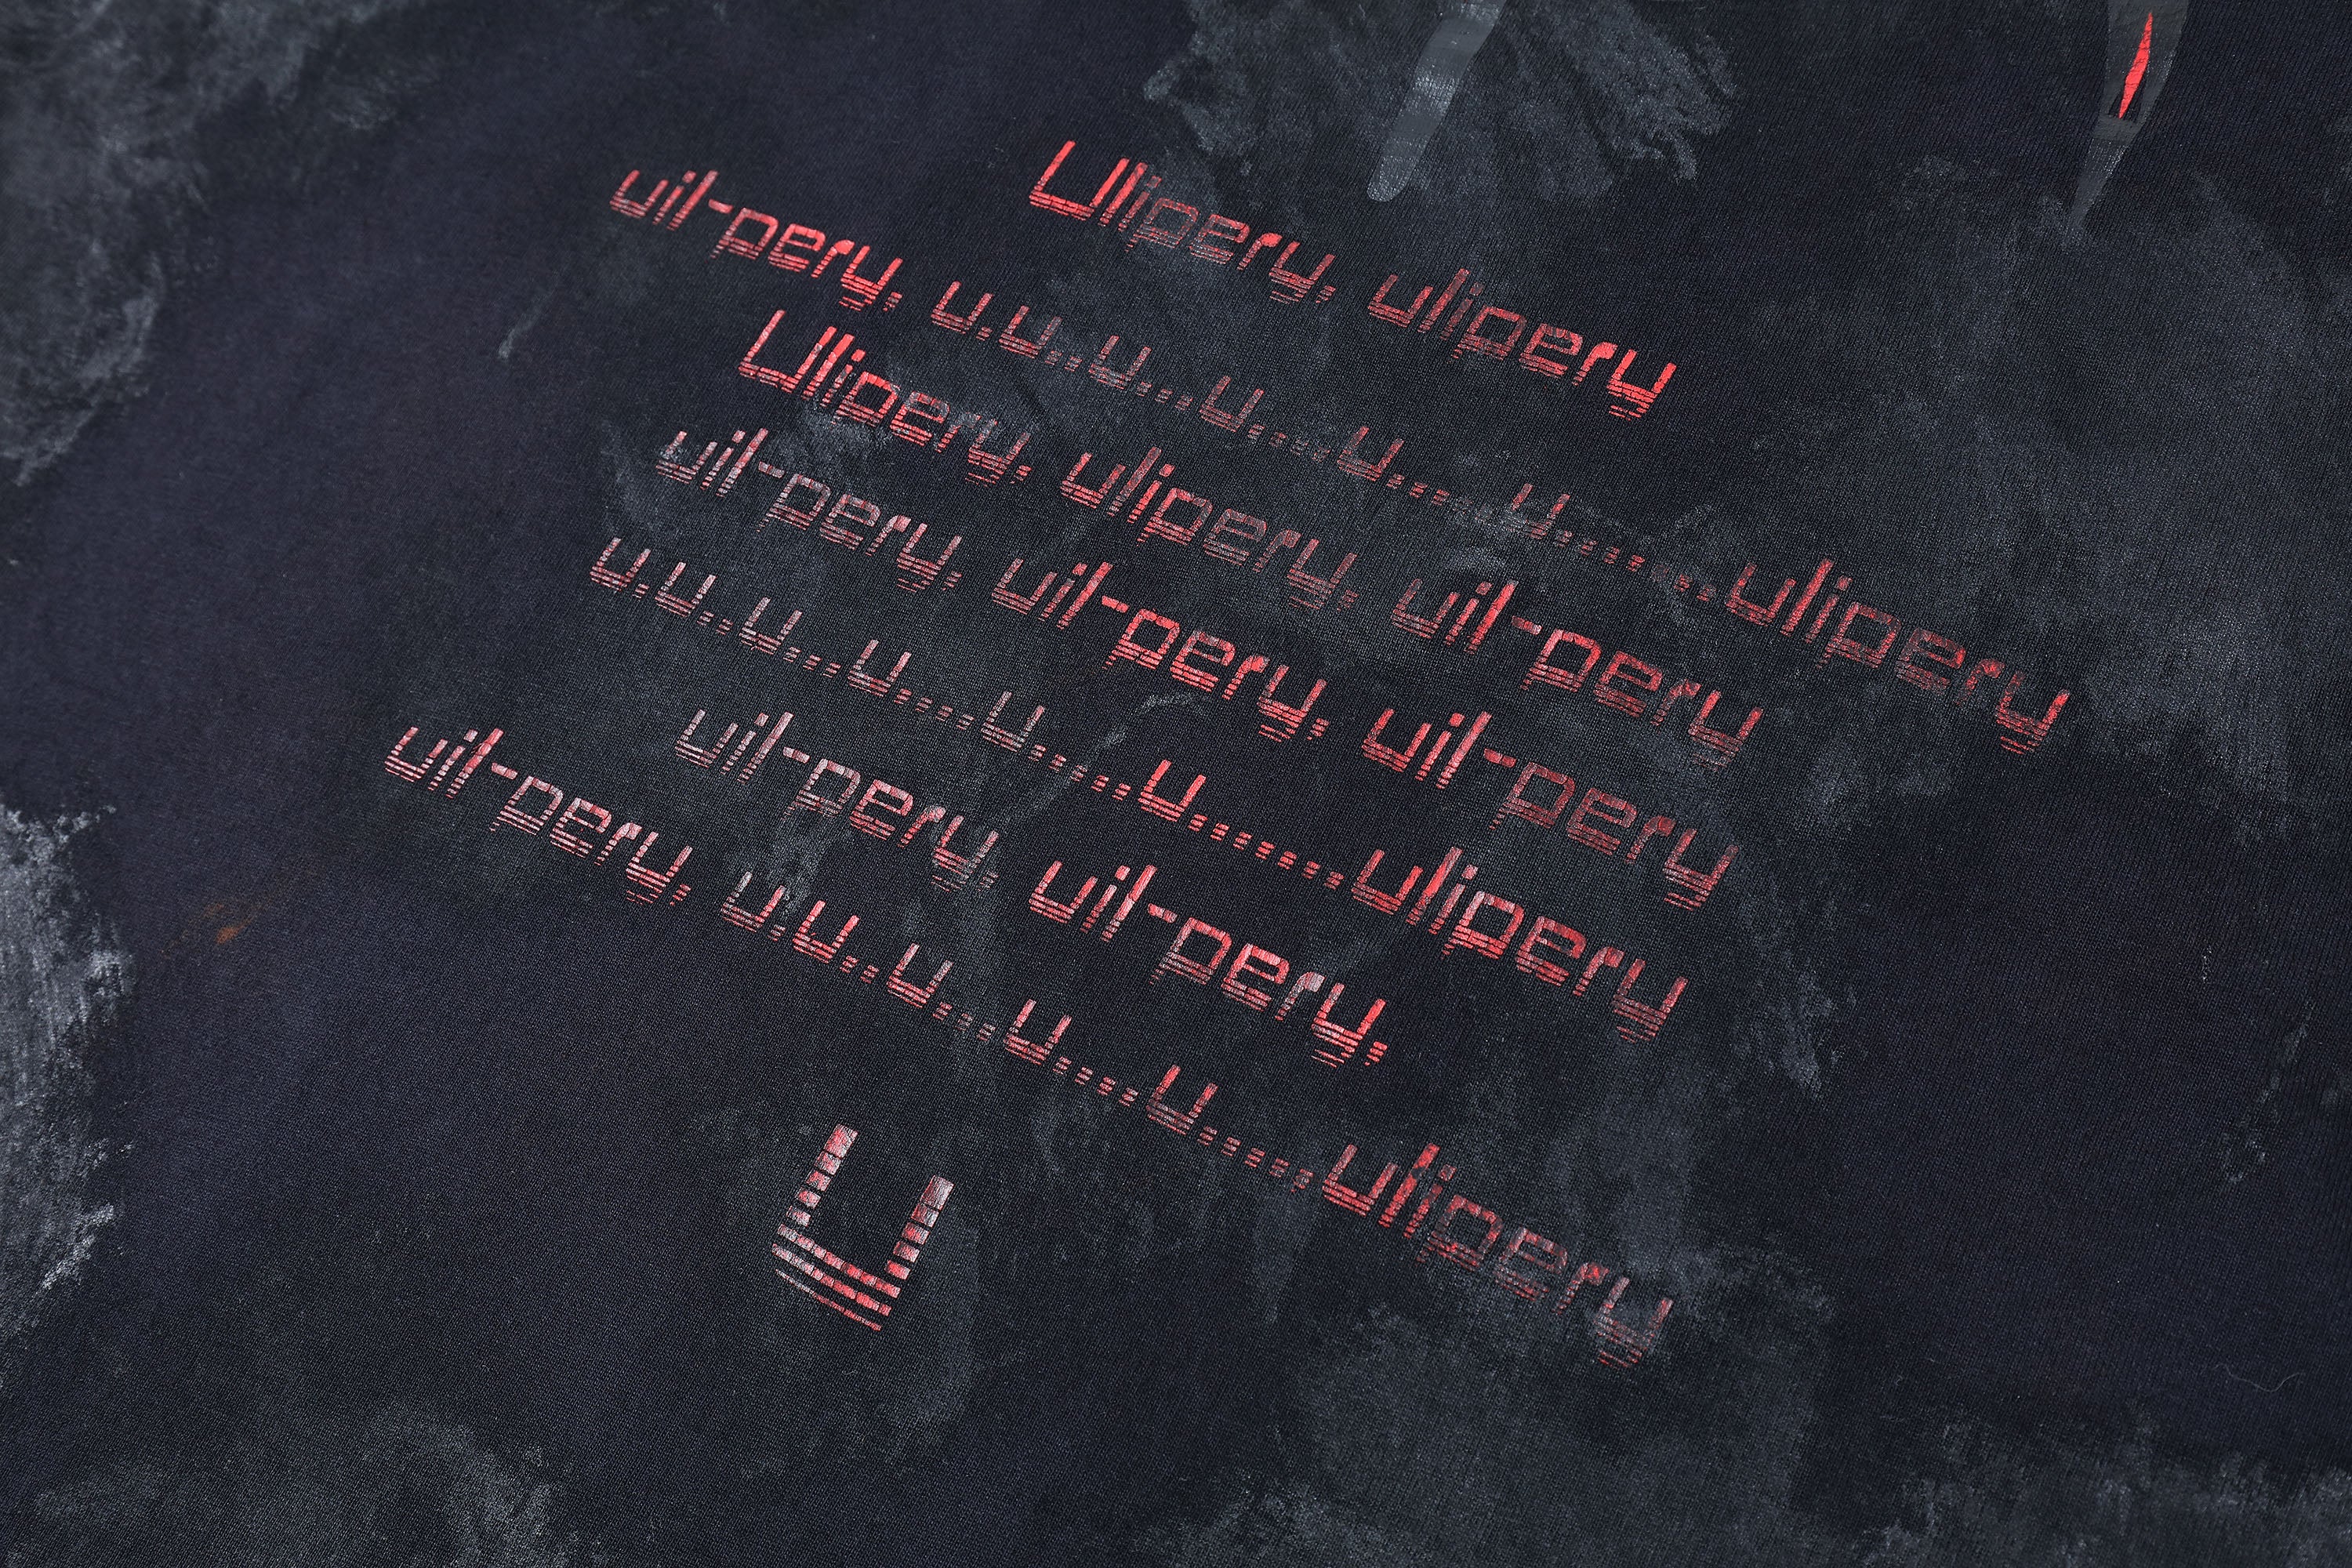 Ulipery, ulipery
uil-pery, u.u..u...u....u.....u.......ulipery
Ulipery, ulipery, uil-pery
uil-pery, uil-pery, uil-pery
u.u..u...u....u.....u.......ulipery
uil-pery, uil-pery,
uil-pery, u.u..u...u....u.....ulipery
U